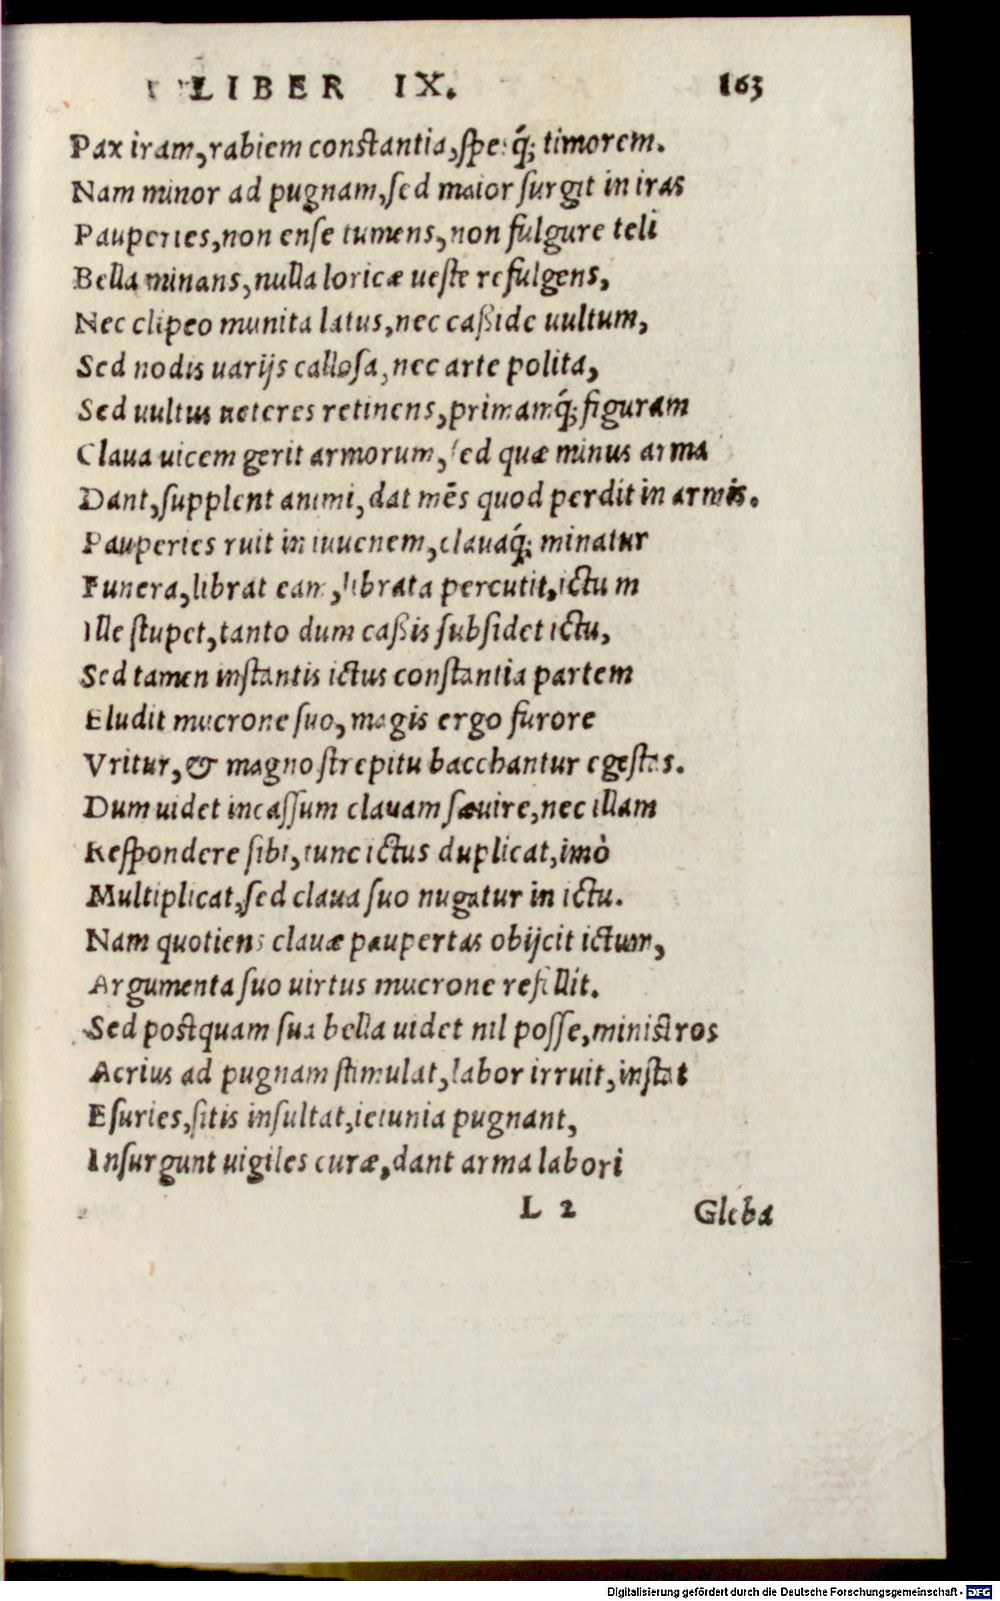 LIBER IX. 163
Pax iram, rabiem constantia, spesq́; timorem.
Nam minor ad pugnam, sed maior surgit in iras
Pauperies, non ense tumens, non fulgure teli
Bella minans, nulla loricæ ueste refulgens,
Nec clipeo munita latus, nec caßide uultum,
Sed nodis uarijs callosa, nec arte polita,
Sed uultus ueteres retinens, primamq́; figuram
Claua uicem gerit armorum, sed quæ minus arma
Dant, supplent animi, dat mẽs quod perdit in armis.
Pauperies ruit in iuuenem, clauaq́; minatur
Funera, librat eam, librata percutit, ictum
Ille stupet, tanto dum caßis subsidet ictu,
Sed tamen instantis ictus constantia partem
Eludit mucrone suo, magis ergo furore
Vritur, & magno strepitu bacchantur egestas.
Dum uidet incassum clauam sæuire, nec illam
Respondere sibi, tunc ictus duplicat, imò
Multiplicat, sed claua suo nugatur in ictu.
Nam quotiens clauæ paupertas obijcit ictum,
Argumenta suo uirtus mucrone refillit.
Sed postquam sua bella uidet nil posse, ministros
Acrius ad pugnam stimulat, labor irruit, instat
Esuries, sitis insultat, ieiunia pugnant,
Insurgunt uigiles curæ, dant arma labori
L 2 Gleba
Digitalisierung gefördert durch die Deutsche Forschungsgemeinschaft - DFG